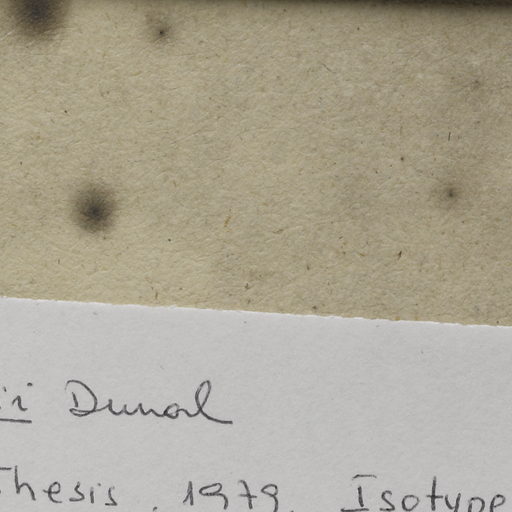 ii Dunal
Thesis, 1979. Isotype